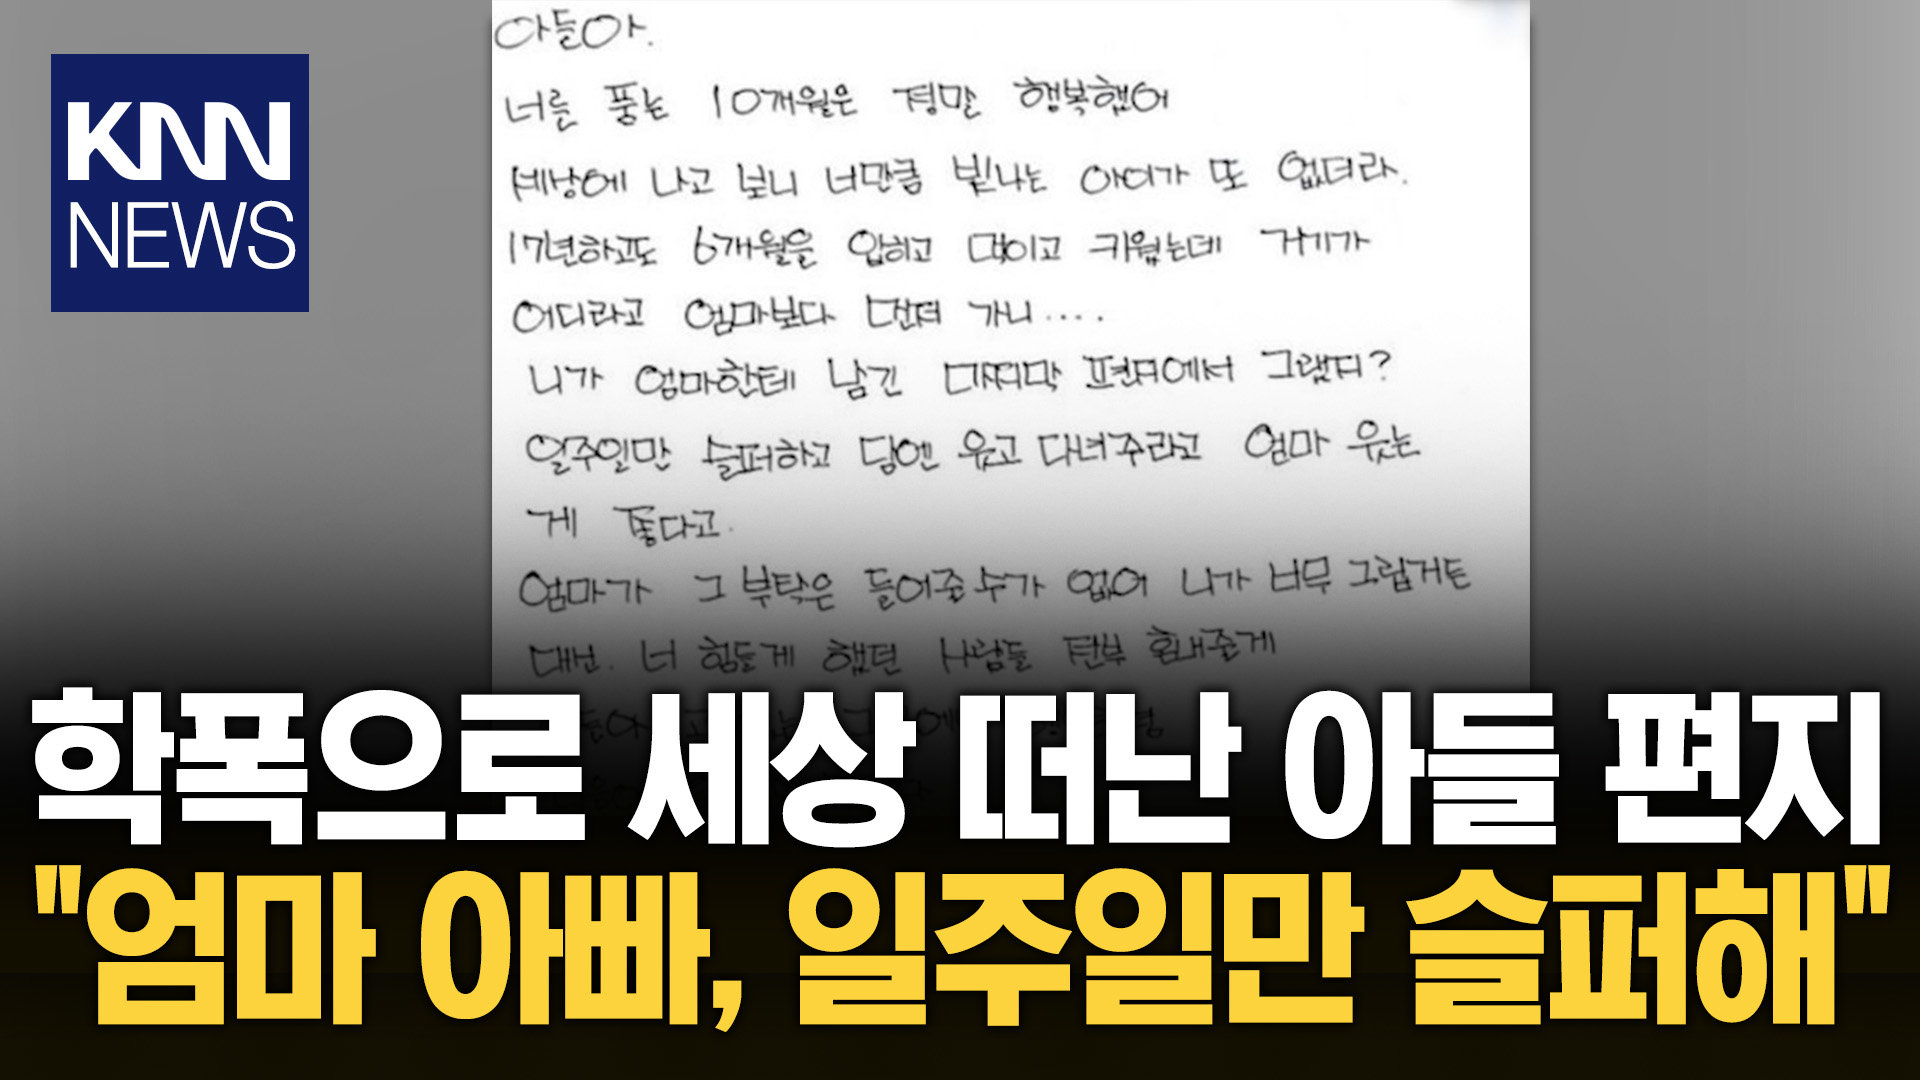 KNN
NEWS
아들아.
너를 품는 10개월은 정말 행복했어
세상에 나고 보니 너만큼 빛나는 아이가 또 없더라.
17년하고도 6개월을 입히고 먹이고 키웠는데 거기가
어디라고 엄마보다 먼저 가니....
니가 엄마한테 남긴 마지막 편지에서 그랬지?
일주일만 슬퍼하고 담엔 웃고 다녀주라고 엄마 웃는
게 좋다고.
엄마가 그 부탁은 들어줄수가 없어 니가 너무 그립거든
대신. 너 힘들게 했던 사람들 전부 혼내줄게
학폭으로 세상 떠난 아들 편지
"엄마 아빠, 일주일만 슬퍼해"